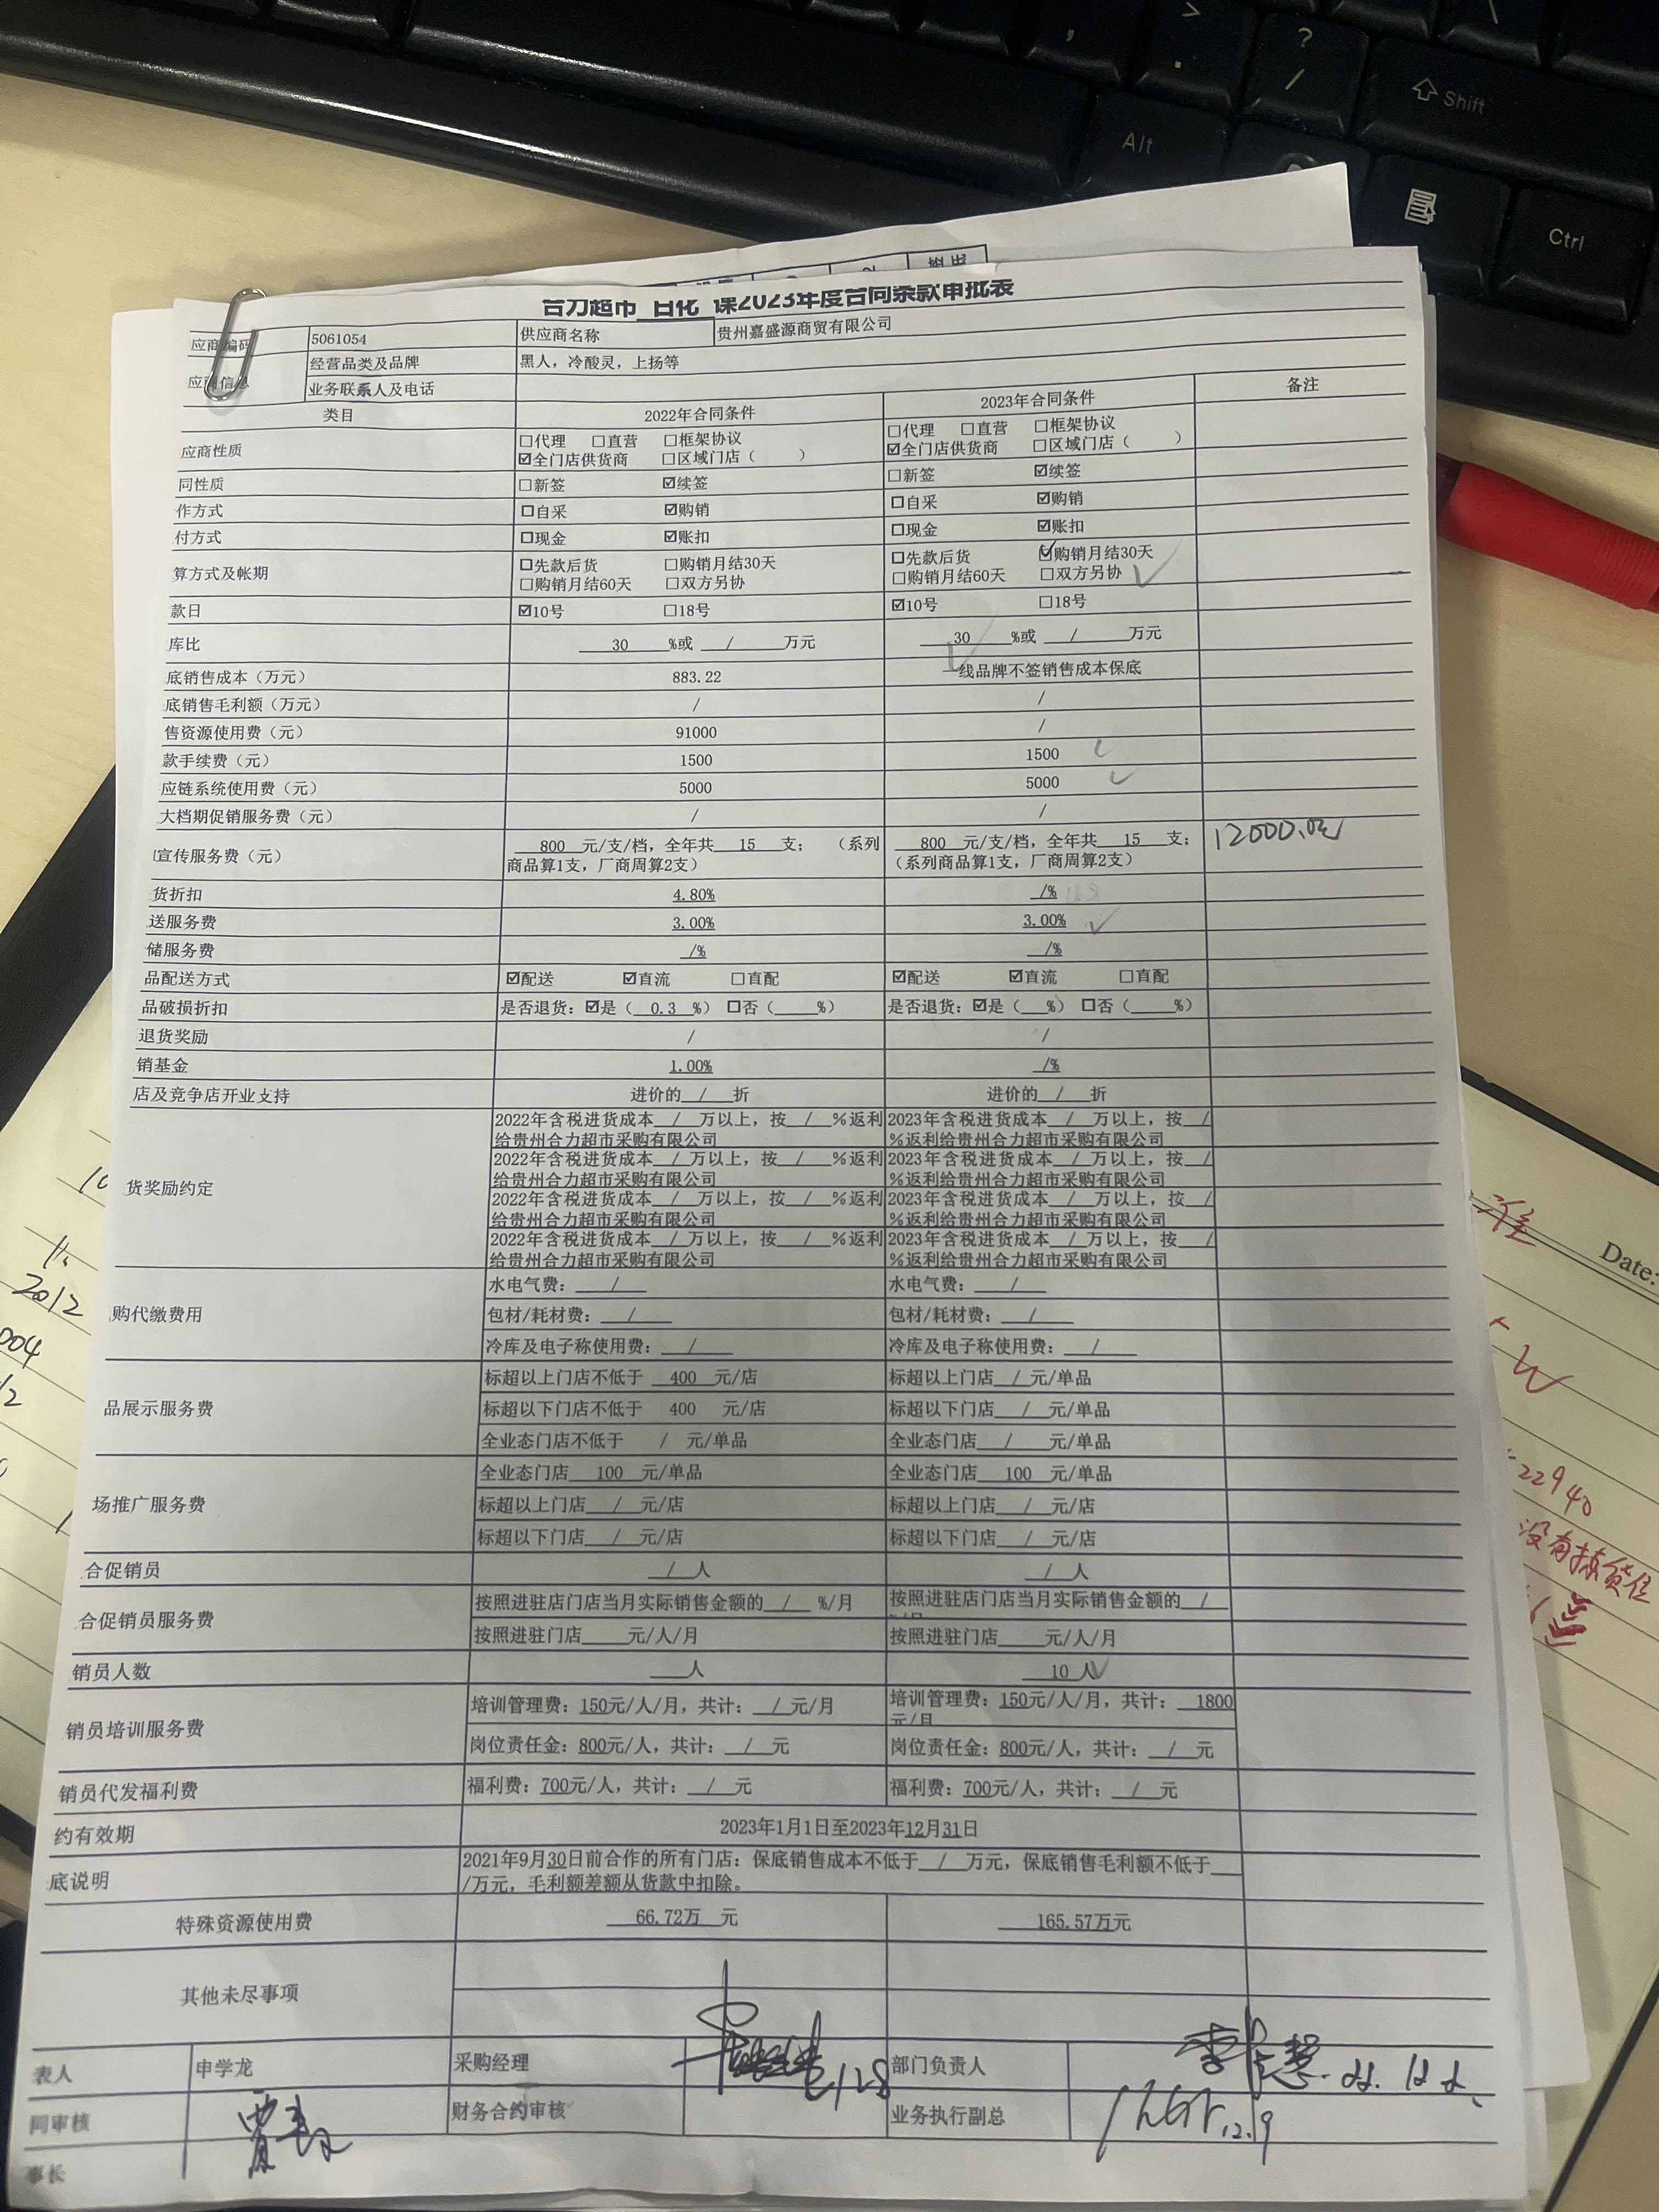 合力超市 日化 课2023年度合同条款审批表
应商编码 5061054 供应商名称 贵州嘉盛源商贸有限公司
应商信息 经营品类及品牌 黑人，冷酸灵，上扬等
业务联系人及电话
类目 2022年合同条件 2023年合同条件 备注
应商性质 □代理 □直营 □框架协议 □代理 □直营 □框架协议
☑全门店供货商 □区域门店（ ） ☑全门店供货商 □区域门店（ ）
同性质 □新签 ☑续签 □新签 ☑续签
作方式 □自采 ☑购销 □自采 ☑购销
付方式 □现金 ☑账扣 □现金 ☑账扣
算方式及帐期 □先款后货 □购销月结30天 □先款后货 ☑购销月结30天
□购销月结60天 □双方另协 □购销月结60天 □双方另协
款日 ☑10号 □18号 ☑10号 □18号
库比 30 %或 / 万元 30 %或 / 万元
底销售成本（万元） 883.22 一线品牌不签销售成本保底
底销售毛利额（万元） / /
售资源使用费（元） 91000 /
款手续费（元） 1500 1500
应链系统使用费（元） 5000 5000
大档期促销服务费（元） / /
宣传服务费（元） 800 元/支/档，全年共 15 支； （系列 800 元/支/档，全年共 15 支； 12000.元
商品算1支，厂商周算2支） （系列商品算1支，厂商周算2支）
货折扣 4.80% /%
送服务费 3.00% 3.00%
储服务费 /% /%
品配送方式 ☑配送 ☑直流 □直配 ☑配送 ☑直流 □直配
品破损折扣 是否退货：☑是（ 0.3 %） □否（ %） 是否退货：☑是（ %） □否（ %）
退货奖励 / /
销基金 1.00% /%
店及竞争店开业支持 进价的 / 折 进价的 / 折
货奖励约定 2022年含税进货成本 / 万以上，按 / %返利 2023年含税进货成本 / 万以上，按 /
给贵州合力超市采购有限公司 %返利给贵州合力超市采购有限公司
2022年含税进货成本 / 万以上，按 / %返利 2023年含税进货成本 / 万以上，按 /
给贵州合力超市采购有限公司 %返利给贵州合力超市采购有限公司
2022年含税进货成本 / 万以上，按 / %返利 2023年含税进货成本 / 万以上，按 /
给贵州合力超市采购有限公司 %返利给贵州合力超市采购有限公司
2022年含税进货成本 / 万以上，按 / %返利 2023年含税进货成本 / 万以上，按 /
给贵州合力超市采购有限公司 %返利给贵州合力超市采购有限公司
购代缴费用 水电气费： / 水电气费： /
包材/耗材费： / 包材/耗材费： /
冷库及电子称使用费： / 冷库及电子称使用费： /
品展示服务费 标超以上门店不低于 400 元/店 标超以上门店 / 元/单品
标超以下门店不低于 400 元/店 标超以下门店 / 元/单品
全业态门店不低于 / 元/单品 全业态门店 / 元/单品
场推广服务费 全业态门店 100 元/单品 全业态门店 100 元/单品
标超以上门店 / 元/店 标超以上门店 / 元/店
标超以下门店 / 元/店 标超以下门店 / 元/店
合促销员 / 人 / 人
合促销员服务费 按照进驻店门店当月实际销售金额的 / %/月 按照进驻店门店当月实际销售金额的 /
%/月
按照进驻门店 元/人/月 按照进驻门店 元/人/月
销员人数 人 10 人
销员培训服务费 培训管理费：150元/人/月，共计： / 元/月 培训管理费：150元/人/月，共计： 1800
元/月
岗位责任金：800元/人，共计： / 元 岗位责任金：800元/人，共计： / 元
销员代发福利费 福利费：700元/人，共计： / 元 福利费：700元/人，共计： / 元
约有效期 2023年1月1日至2023年12月31日
底说明 2021年9月30日前合作的所有门店：保底销售成本不低于 / 万元，保底销售毛利额不低于
/万元，毛利额差额从货款中扣除。
特殊资源使用费 66.72万 元 165.57万元
其他未尽事项
表人 申学龙 采购经理 12.8 部门负责人
同审核 财务合约审核 业务执行副总 12.9
事长
Shift
Alt
Ctrl
Date:
2012
004
22940
没有